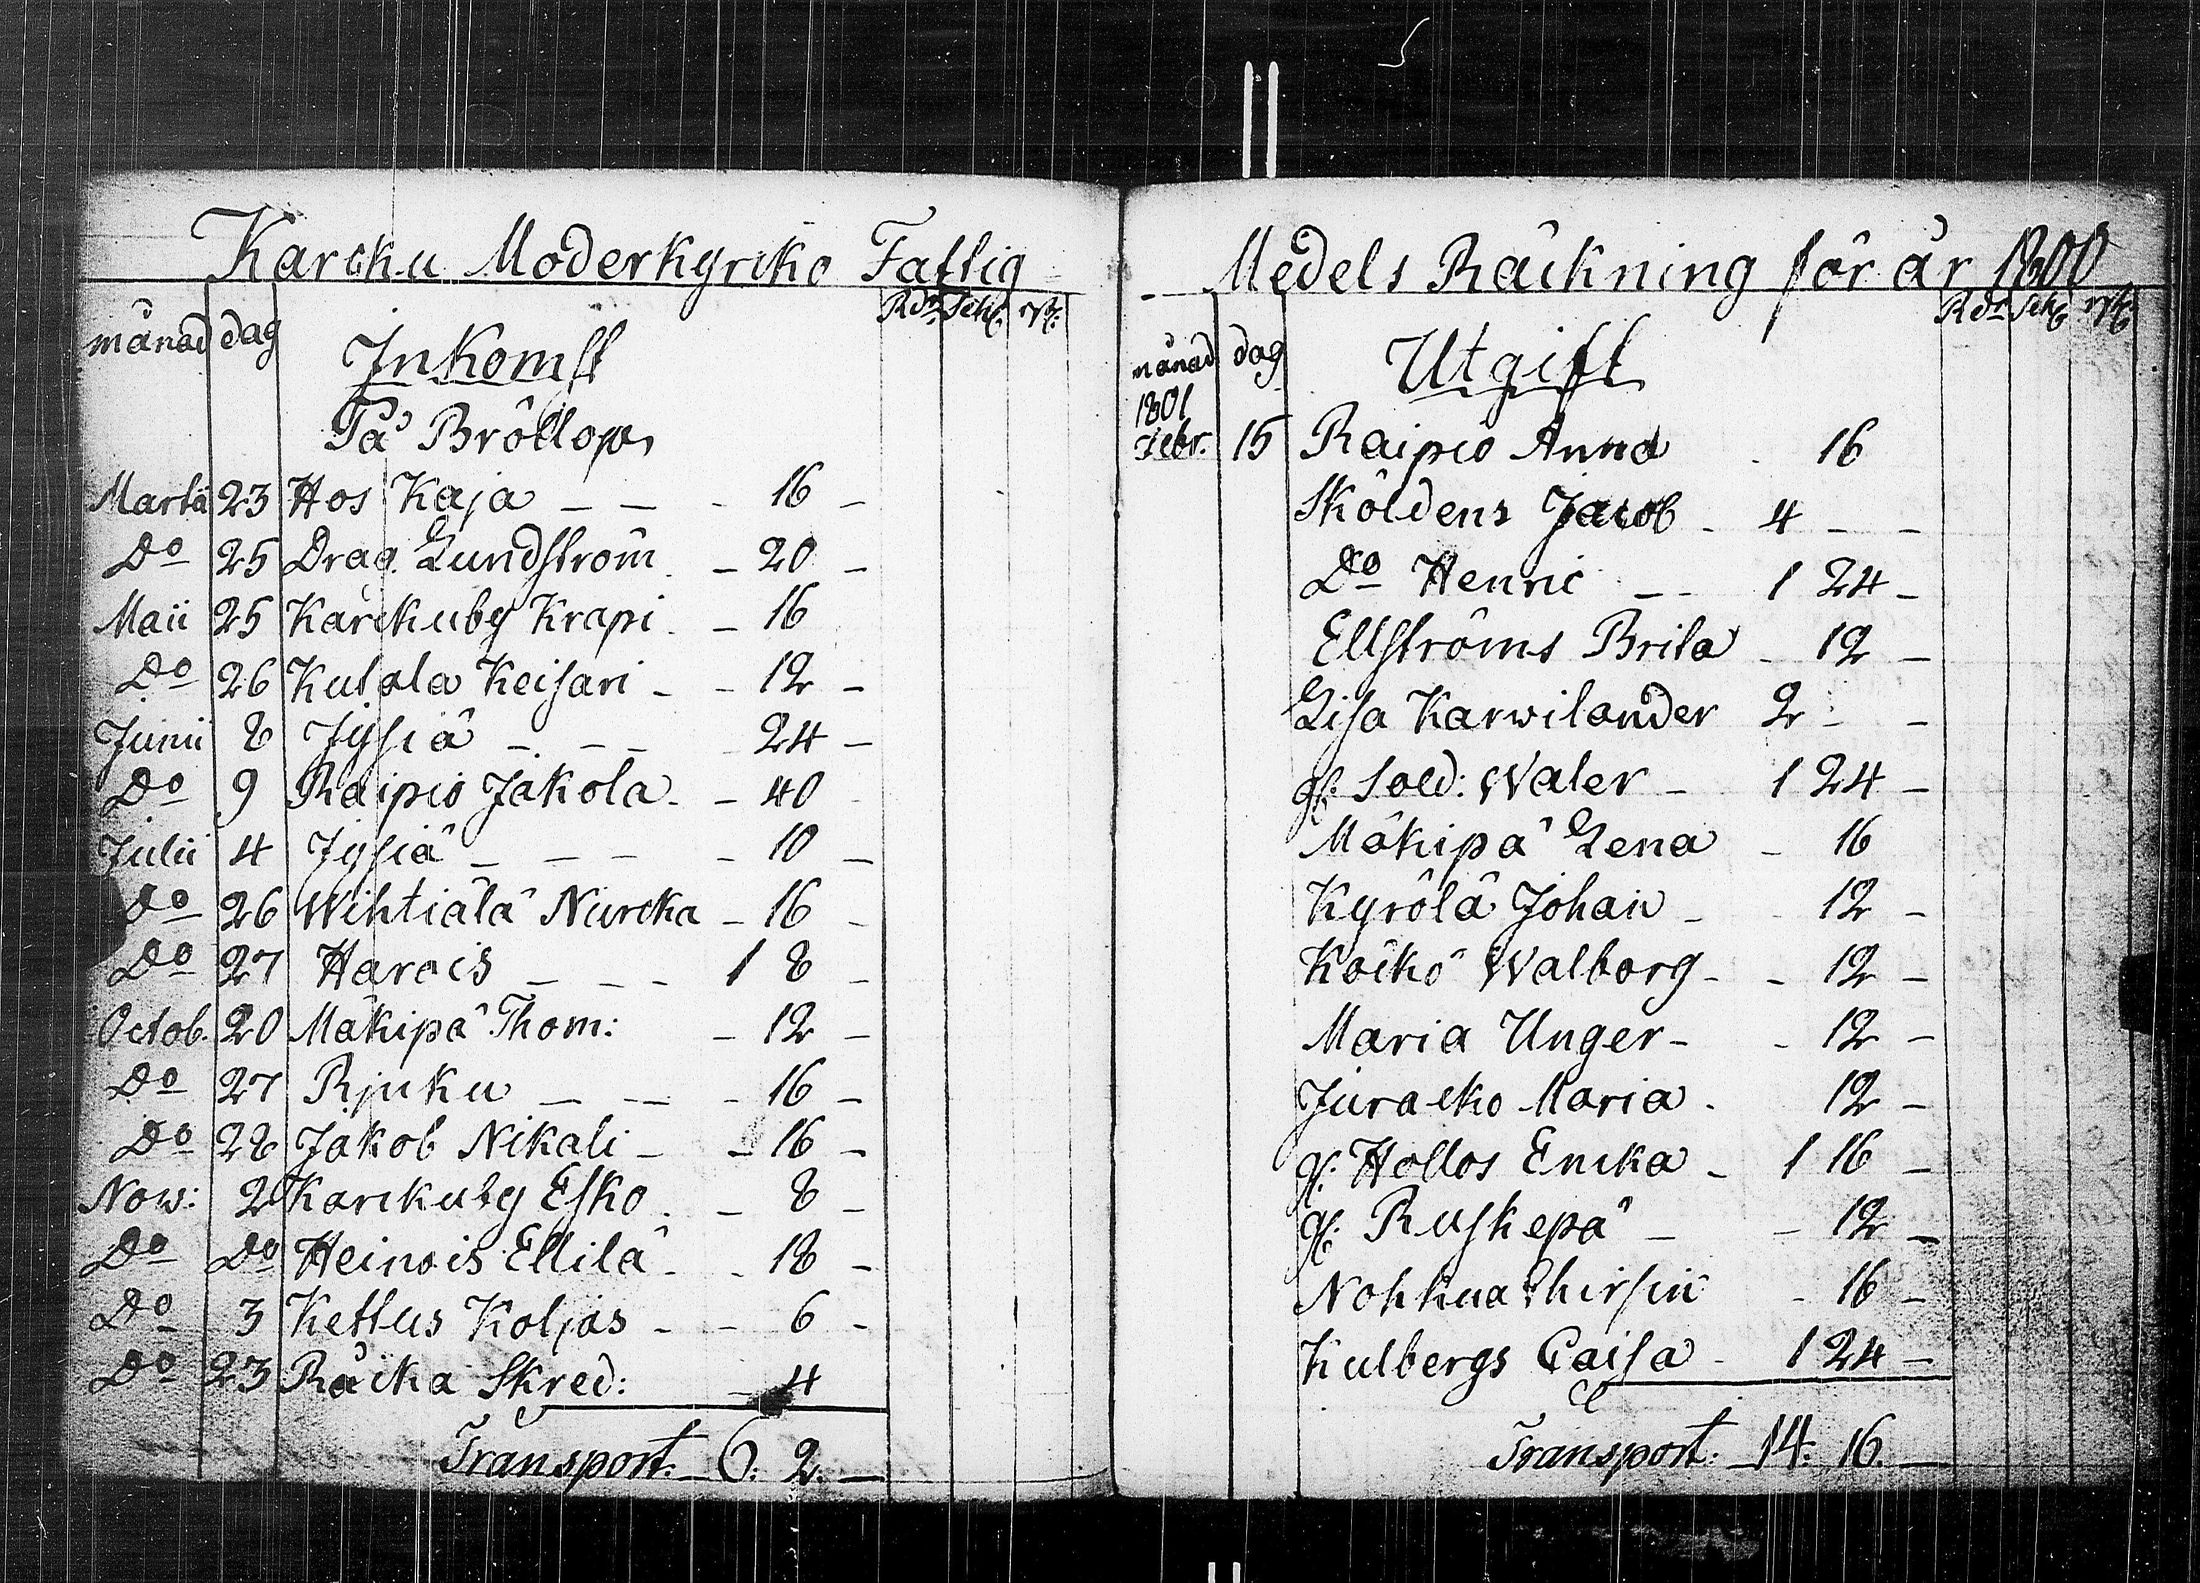 Karcku Moderkyrcko Fattig
månad dag Rdr Sch. rst:
Inkomst
På Bröllop
Martii 23 Hos Kaja — — - 16 —
Do 25 Drag. Lundström - 20 —
Maii 25 Karckuby Krapi - 16
Do 26 Kutala Keisari - - 12 —
Junii 8 Jysiä - - - 24 —
Do 9 Raipio Jakola - - 40 -
Julii 4 Jysiä - - - - 10 —
Do 26 Wihtiälä Nurcka - 16 -
Do 27 Harois - - - 1 8 -
Octob. 20 Mäkipä Thom: - 12 —
Do 27 Rjuku - - - 16 —
Do 28 Jakob Nikali - - 16 —
Now: 2 Karckuby Esko - 8 —
Do Do Heinois Ellilä - - 18 —
Do 3 Kettus Koljas - - 6 -
Do 23 Räcka Skred: - 4
Transport. 6: 2. —
Medels Räckning för år 1800
Rdr Sch. rst:
månad dag Utgift
1801
Febr. 15 Raipio Anna - 16
Sköldens Jacob - 4 - -
Do Henric - - 1 24 -
Ellströms Brita - 12 -
Lisa Karwilander 2 - -
gl. Sold: Waler - 1 24 -
Mäkipä Lena - 16
Kyrölä Johan - - 12 -
Koikö Walborg - - 12 -
Maria Unger - - 12 -
Juracko Maria - 12 -
gl. Hollos Ericka - 1 16 -
gl. Ruskepä - - 12 -
Nohkua - 16 -
Kulbergs Caisa - 1 24 -
Transport: 14: 16. —